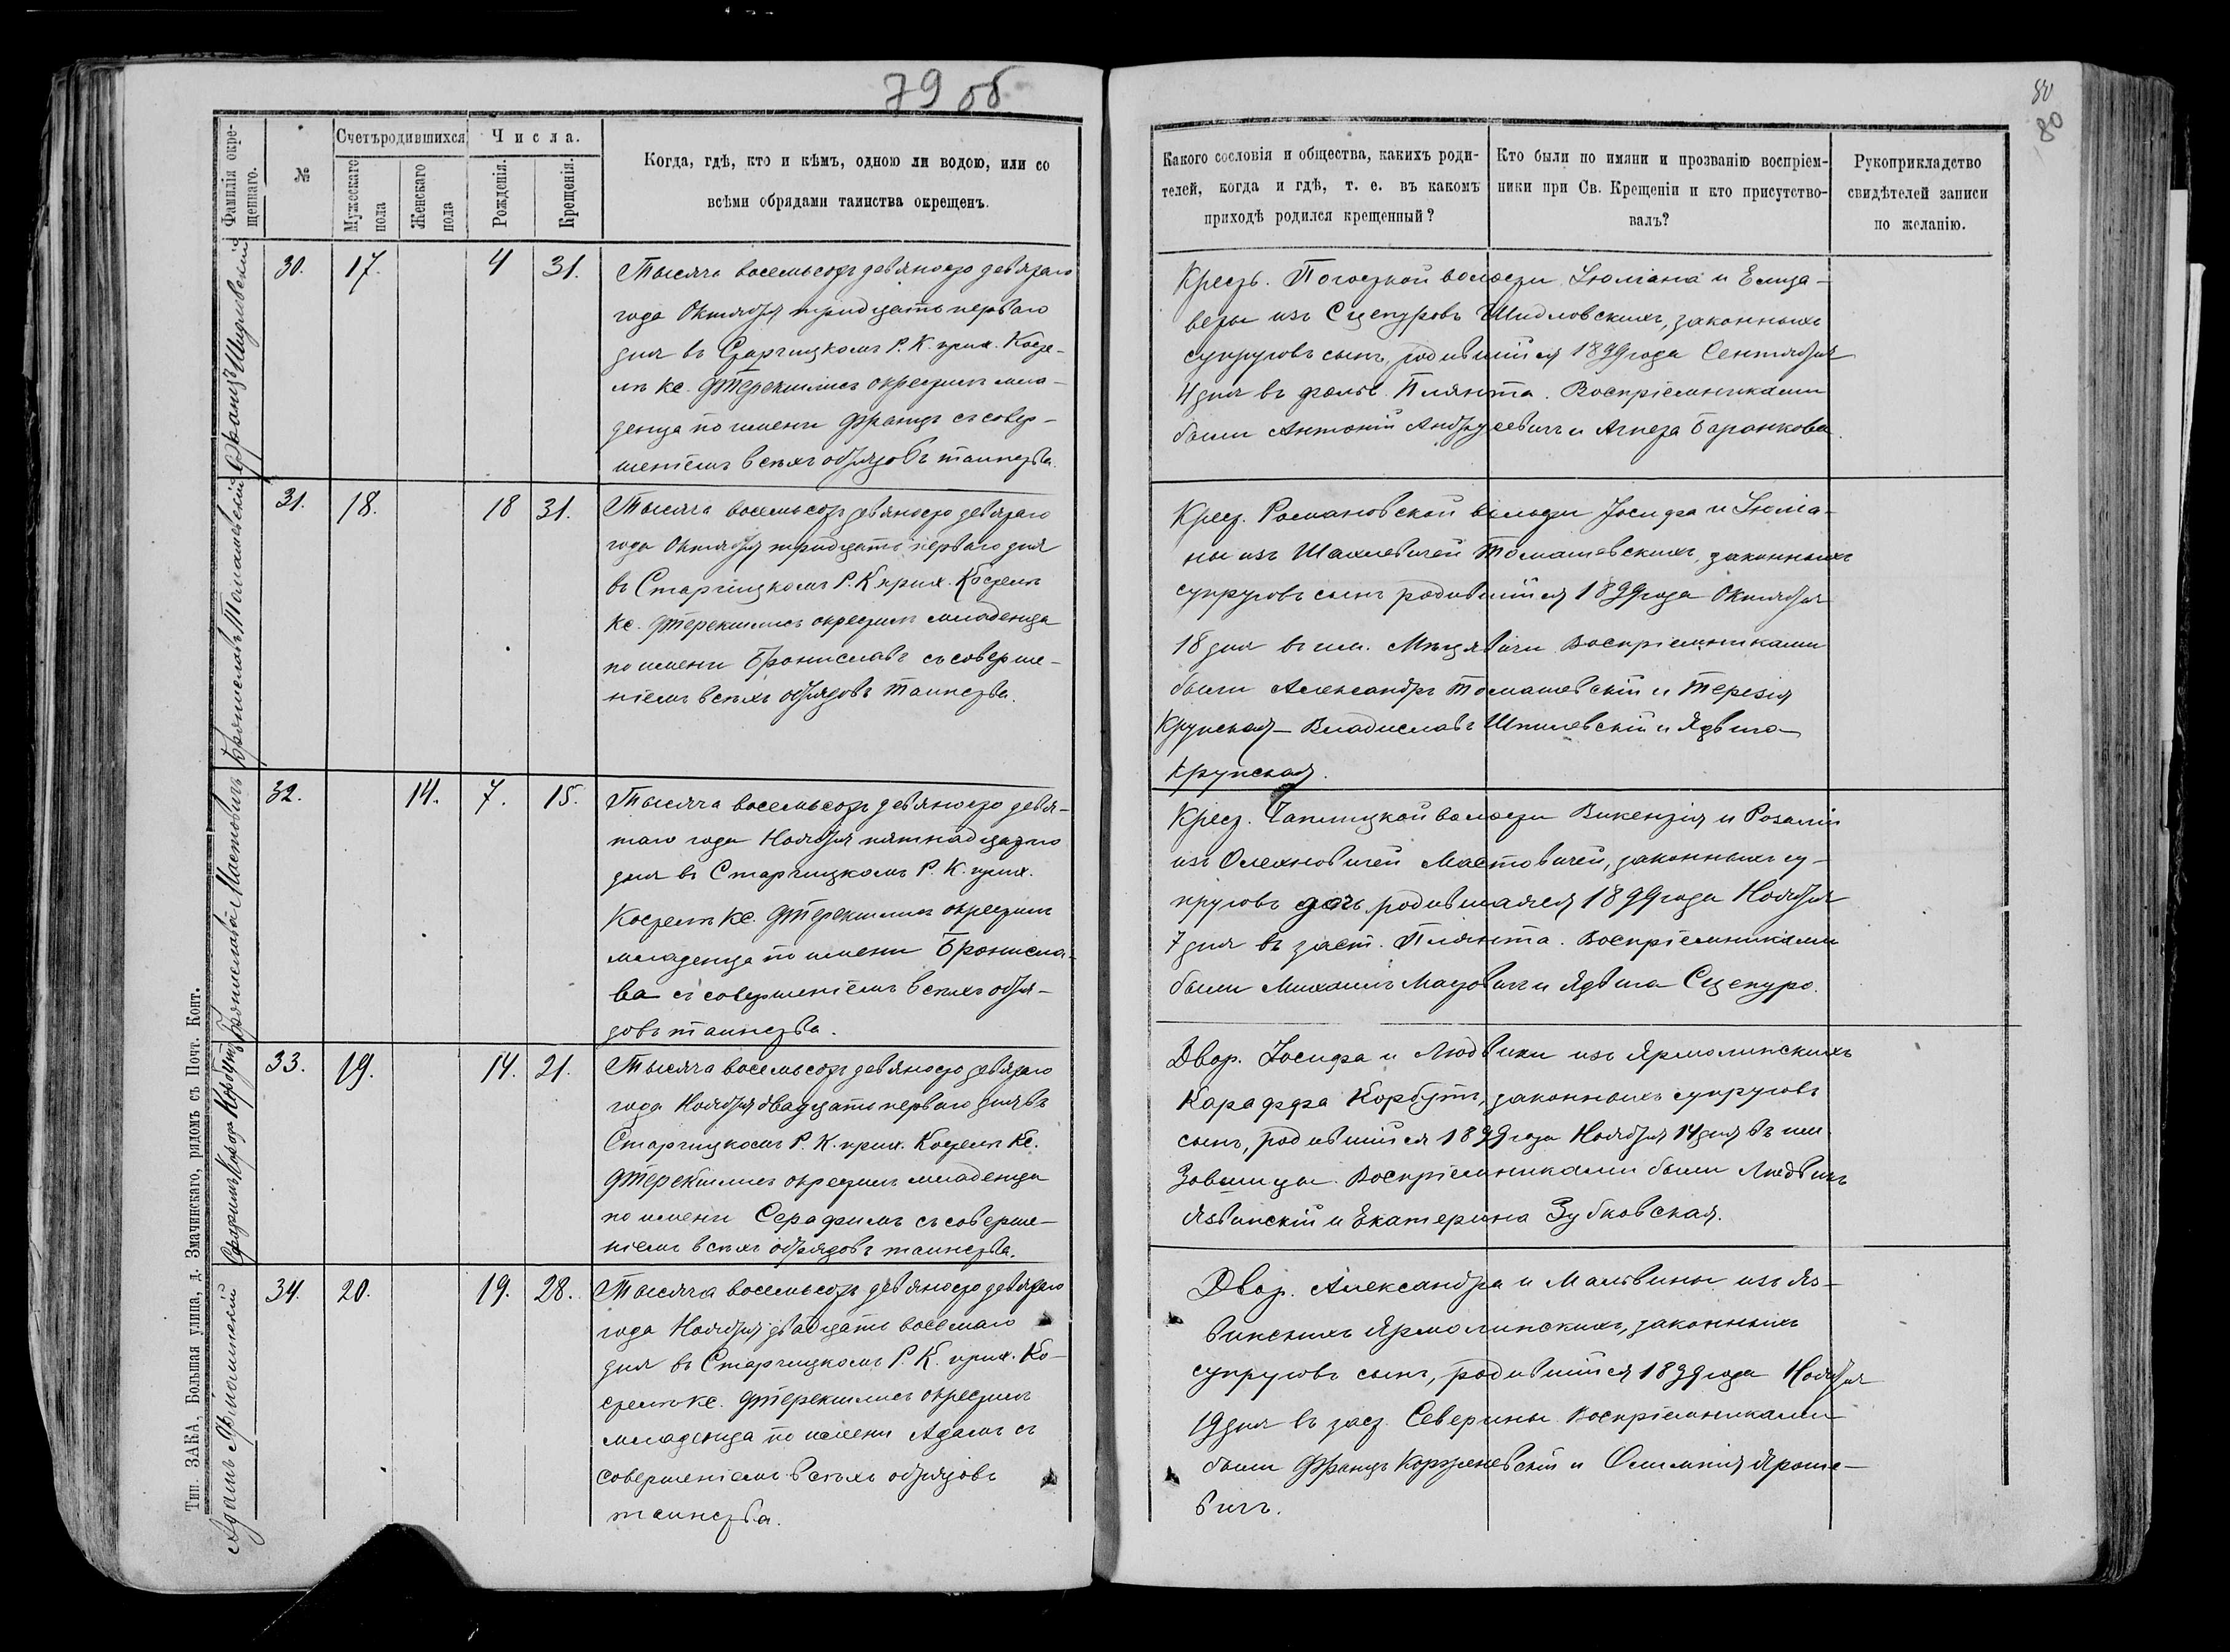 79 об
80
80
Фамилія окре-
щеннаго.
№
Счетъ родившихся
Мужескаго
пола
Женскаго
пола
Числа.
Рожденія.
Крещенія.
Когда, гдѣ, кто и кѣмъ, одною ли водою, или со
всѣми обрядами таинства окрещенъ.
Какого сословія и общества, какихъ роди-
телей, когда и гдѣ, т. е. въ какомъ
приходѣ родился крещенный?
Кто были по имяни и прозванію воспріем-
ники при Св. Крещеніи и кто присутство-
валъ?
Рукоприкладство
свидѣтелей записи
по желанію.
Францъ Шидловскій
30. 17. 4 31.
Тысяча восемьсотъ девяносто девятаго
года Октября тридцать перваго
дня въ Старчицкомъ Р. К. прих. Косте-
лѣ кс. Фтерекилисъ окрестилъ мла-
денца по имени Францъ съ совер-
шеніемъ всѣхъ обрядовъ таинства.
Крестъ. Погосткой волости Юліана и Елиза-
веты изъ Сцепуровъ Шидловскихъ, законныхъ
супруговъ сынъ, родившійся 1899 года Сентября
4 дня въ фольв. Плянта. Воспріемниками
были Антоній Андрусевичъ и Агнеза Баранкова.
Брониславъ Томашевскій
31. 18. 18 31.
Тысяча восемьсотъ девяносто девятаго
года Октября тридцать перваго дня
въ Старчицкомъ Р. К. прих. Костелѣ
кс. Фтерекилисъ окрестилъ младенца
по имени Брониславъ съ соверше-
ніемъ всѣхъ обрядовъ таинства.
Крест. Романовской волости Іосифа и Юліа-
ны изъ Шахлевичей Томашевскихъ, законныхъ
супруговъ сынъ родившійся 1899 года Октября
18 дня въ им. Мѣцявичи Воспріемниками
были Александръ Томашевскій и Терезія
Крупская – Владиславъ Шпилевскій и Ядвига
Крупская.
Бронислава Мастовичъ
32. 14. 7. 15.
Тысяча восемьсотъ девяносто девя-
таго года Ноября пятнадцатаго
дня въ Старчицкомъ Р. К. прих.
Костелѣ кс. Фтерекилисъ окрестилъ
младенца по имени Бронисла-
ва съ совершеніемъ всѣхъ обря-
довъ таинства.
Крест. Чаплицкой волости Викентія и Розаліи
изъ Олехновичей Мастовичей, законныхъ су-
пруговъ дочь, родившаяся 1899 года Ноября
7 дня въ заст. Плянта. Воспріемниками
были Михаилъ Мацовичъ и Ядвига Сцепуро.
Серафимъ Корбутъ
33. 19. 14. 21.
Тысяча восемьсотъ девяносто девятаго
года Ноября двадцать перваго дня въ
Старчицкомъ Р. К. прих. Костелѣ Кс.
Фтерекилисъ окрестилъ младенца
по имени Серафимъ съ соверше-
ніемъ всѣхъ обрядовъ таинства.
Двор. Іосифа и Людвики изъ Ярмолинскихъ
Караффа Корбутъ, законныхъ супруговъ
сынъ, родившійся 1899 года Ноября 14 дня въ им.
Зовшицы. Воспріемниками были Людвикъ
Язвинскій и Екатерина Зубковская.
Адамъ Ярмолинскій
34. 20. 19. 28.
Тысяча восемьсотъ девяносто девятаго
года Ноября двадцать восьмаго
дня въ Старчицкомъ Р. К. прих. Ко-
стелѣ кс. Фтерекилисъ окрестилъ
младенца по имени Адамъ съ
совершеніемъ всѣхъ обрядовъ
таинства.
Двор. Александра и Мальвины изъ Яз-
винскихъ Ярмолинскихъ, законныхъ
супруговъ сынъ, родившійся 1899 года Ноября
19 дня въ заст. Северины. Воспріемниками
были Францъ Корженевскій и Олимпія Яроше-
вичъ.
Тип. ЗАКА, Большая улица, д. Змачинскаго, рядомъ съ Почт. Конт.